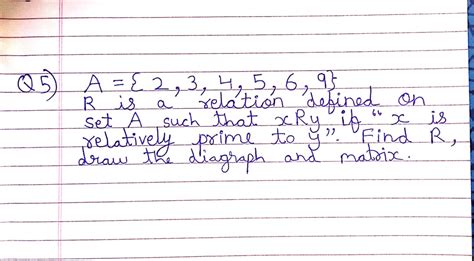 Q5) A = { 2, 3, 4, 5, 6, 9}
R is a relation defined on
set A such that xRy if "x is
relatively prime to y". Find R,
draw the diagraph and matrix.